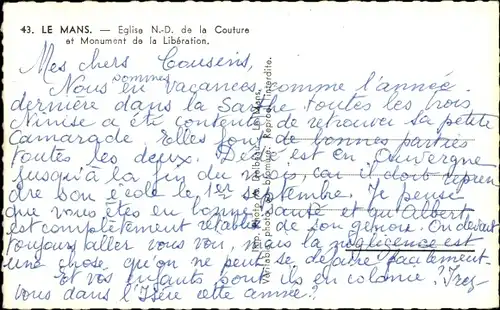 43. LE MANS. — Eglise N.-D. de la Couture
et Monument de la Libération.
Mes chers Cousins,
Nous sommes en vacances comme l'année
dernière dans la Sarthe toutes les trois
Ninise a été contente de retrouver sa petite
Camarade Elles font de bonnes parties
toutes les deux. est en Auvergne
jusqu'à la fin du mois, car il doit repren
dre son école le 1er septembre. Je pense
que vous êtes en bonne santé et qu'Albert
est complètement rétabli de son genou. On devait
toujours aller vous voir, mais la négligence est
une chose qu'on ne peut se défaire facilement
Et vos enfants sont ils en colonie? Irez
vous dans l'Isère cette année?